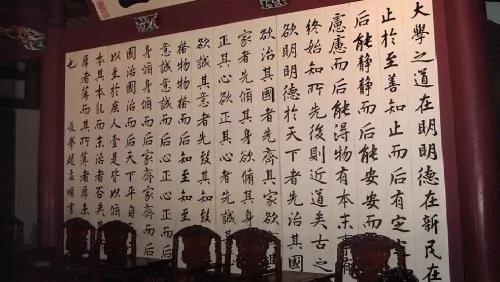 大學之道在明明德在新民在
止於至善知止而后有定
后能靜靜而后能安安而
慮慮而后能得物有本末事
終始知所先後則近道矣古之
欲明明德於天下者先治其國
欲治其國者先齊其家欲
家者先脩其身欲脩其身
正其心欲正其心者先誠其
欲誠其意者先致其知
格物物格而后知至知至
意誠意誠而后心正心正而
身脩身脩而后家齊家齊而后
國治國治而后天下平自
以至於庶人壹是皆以脩
本其本亂而末治者否矣其
厚者薄而其所薄者厚未
也
後學趙孟頫書